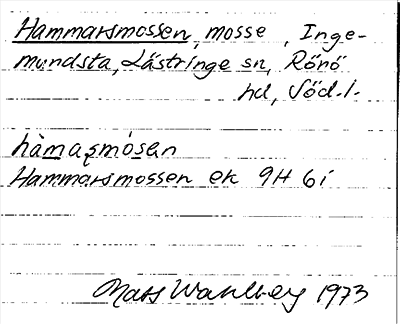 Hammarsmossen, mosse, Inge-
mundsta, Lästringe sn, Rönö
hd, Söd.l.
hàmaʂmósen
Hammarsmossen ek 9H 6i
Mats Wahlberg 1973